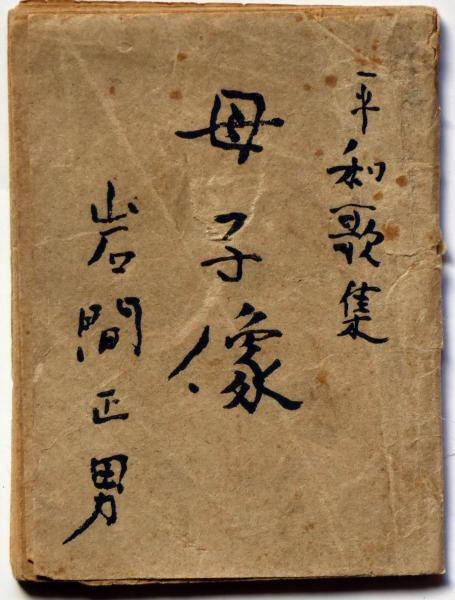 平和歌集
母子像
岩間正男